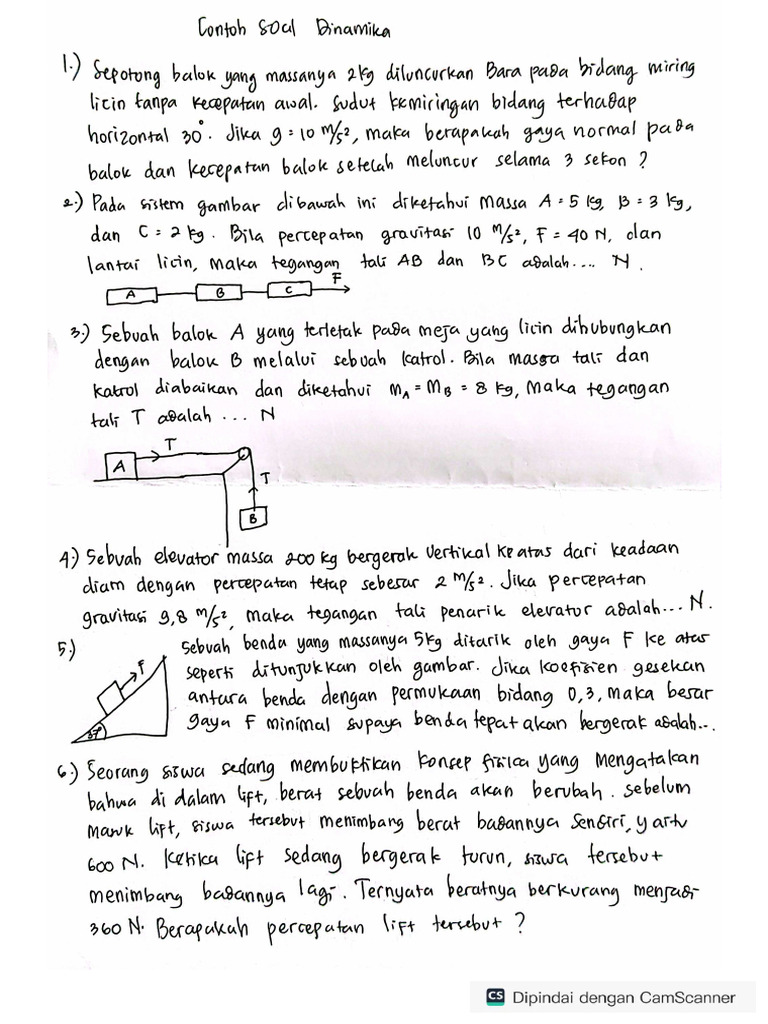 Contoh soal Dinamika
1.) Sepotong balok yang massanya 2 kg diluncurkan Bara pada bidang miring
licin tanpa kecepatan awal. Sudut kemiringan bidang terhadap
horizontal 30°. Jika g = 10 m/s², maka berapakah gaya normal pada
balok dan kecepatan balok setelah meluncur selama 3 sekon ?
2.) Pada sistem gambar dibawah ini diketahui massa A = 5 kg, B = 3 kg,
dan C = 2 kg. Bila percepatan gravitasi 10 m/s², F = 40 N, dan
lantai licin, maka tegangan tali AB dan BC adalah.... N.
A B C F
3.) Sebuah balok A yang terletak pada meja yang licin dihubungkan
dengan balok B melalui sebuah katrol. Bila massa tali dan
katrol diabaikan dan diketahui mA = mB = 8 kg, maka tegangan
tali T adalah ... N
T
A
T
B
4.) Sebuah elevator massa 200 kg bergerak vertikal ke atas dari keadaan
diam dengan percepatan tetap sebesar 2 m/s². Jika percepatan
gravitasi 9,8 m/s², maka tegangan tali penarik elevator adalah... N.
5.) Sebuah benda yang massanya 5kg ditarik oleh gaya F ke atas
seperti ditunjukkan oleh gambar. Jika koefisien gesekan
antara benda dengan permukaan bidang 0,3, maka besar
gaya F minimal supaya benda tepat akan bergerak adalah...
F
37°
6.) Seorang siswa sedang membuktikan konsep fisica yang mengatakan
bahwa di dalam lift, berat sebuah benda akan berubah. Sebelum
masuk lift, siswa tersebut menimbang berat badannya sendiri, yaitu
600 N. Ketika lift sedang bergerak turun, siswa tersebut
menimbang badannya lagi. Ternyata beratnya berkurang menjadi
360 N. Berapakah percepatan lift tersebut ?
CS Dipindai dengan CamScanner